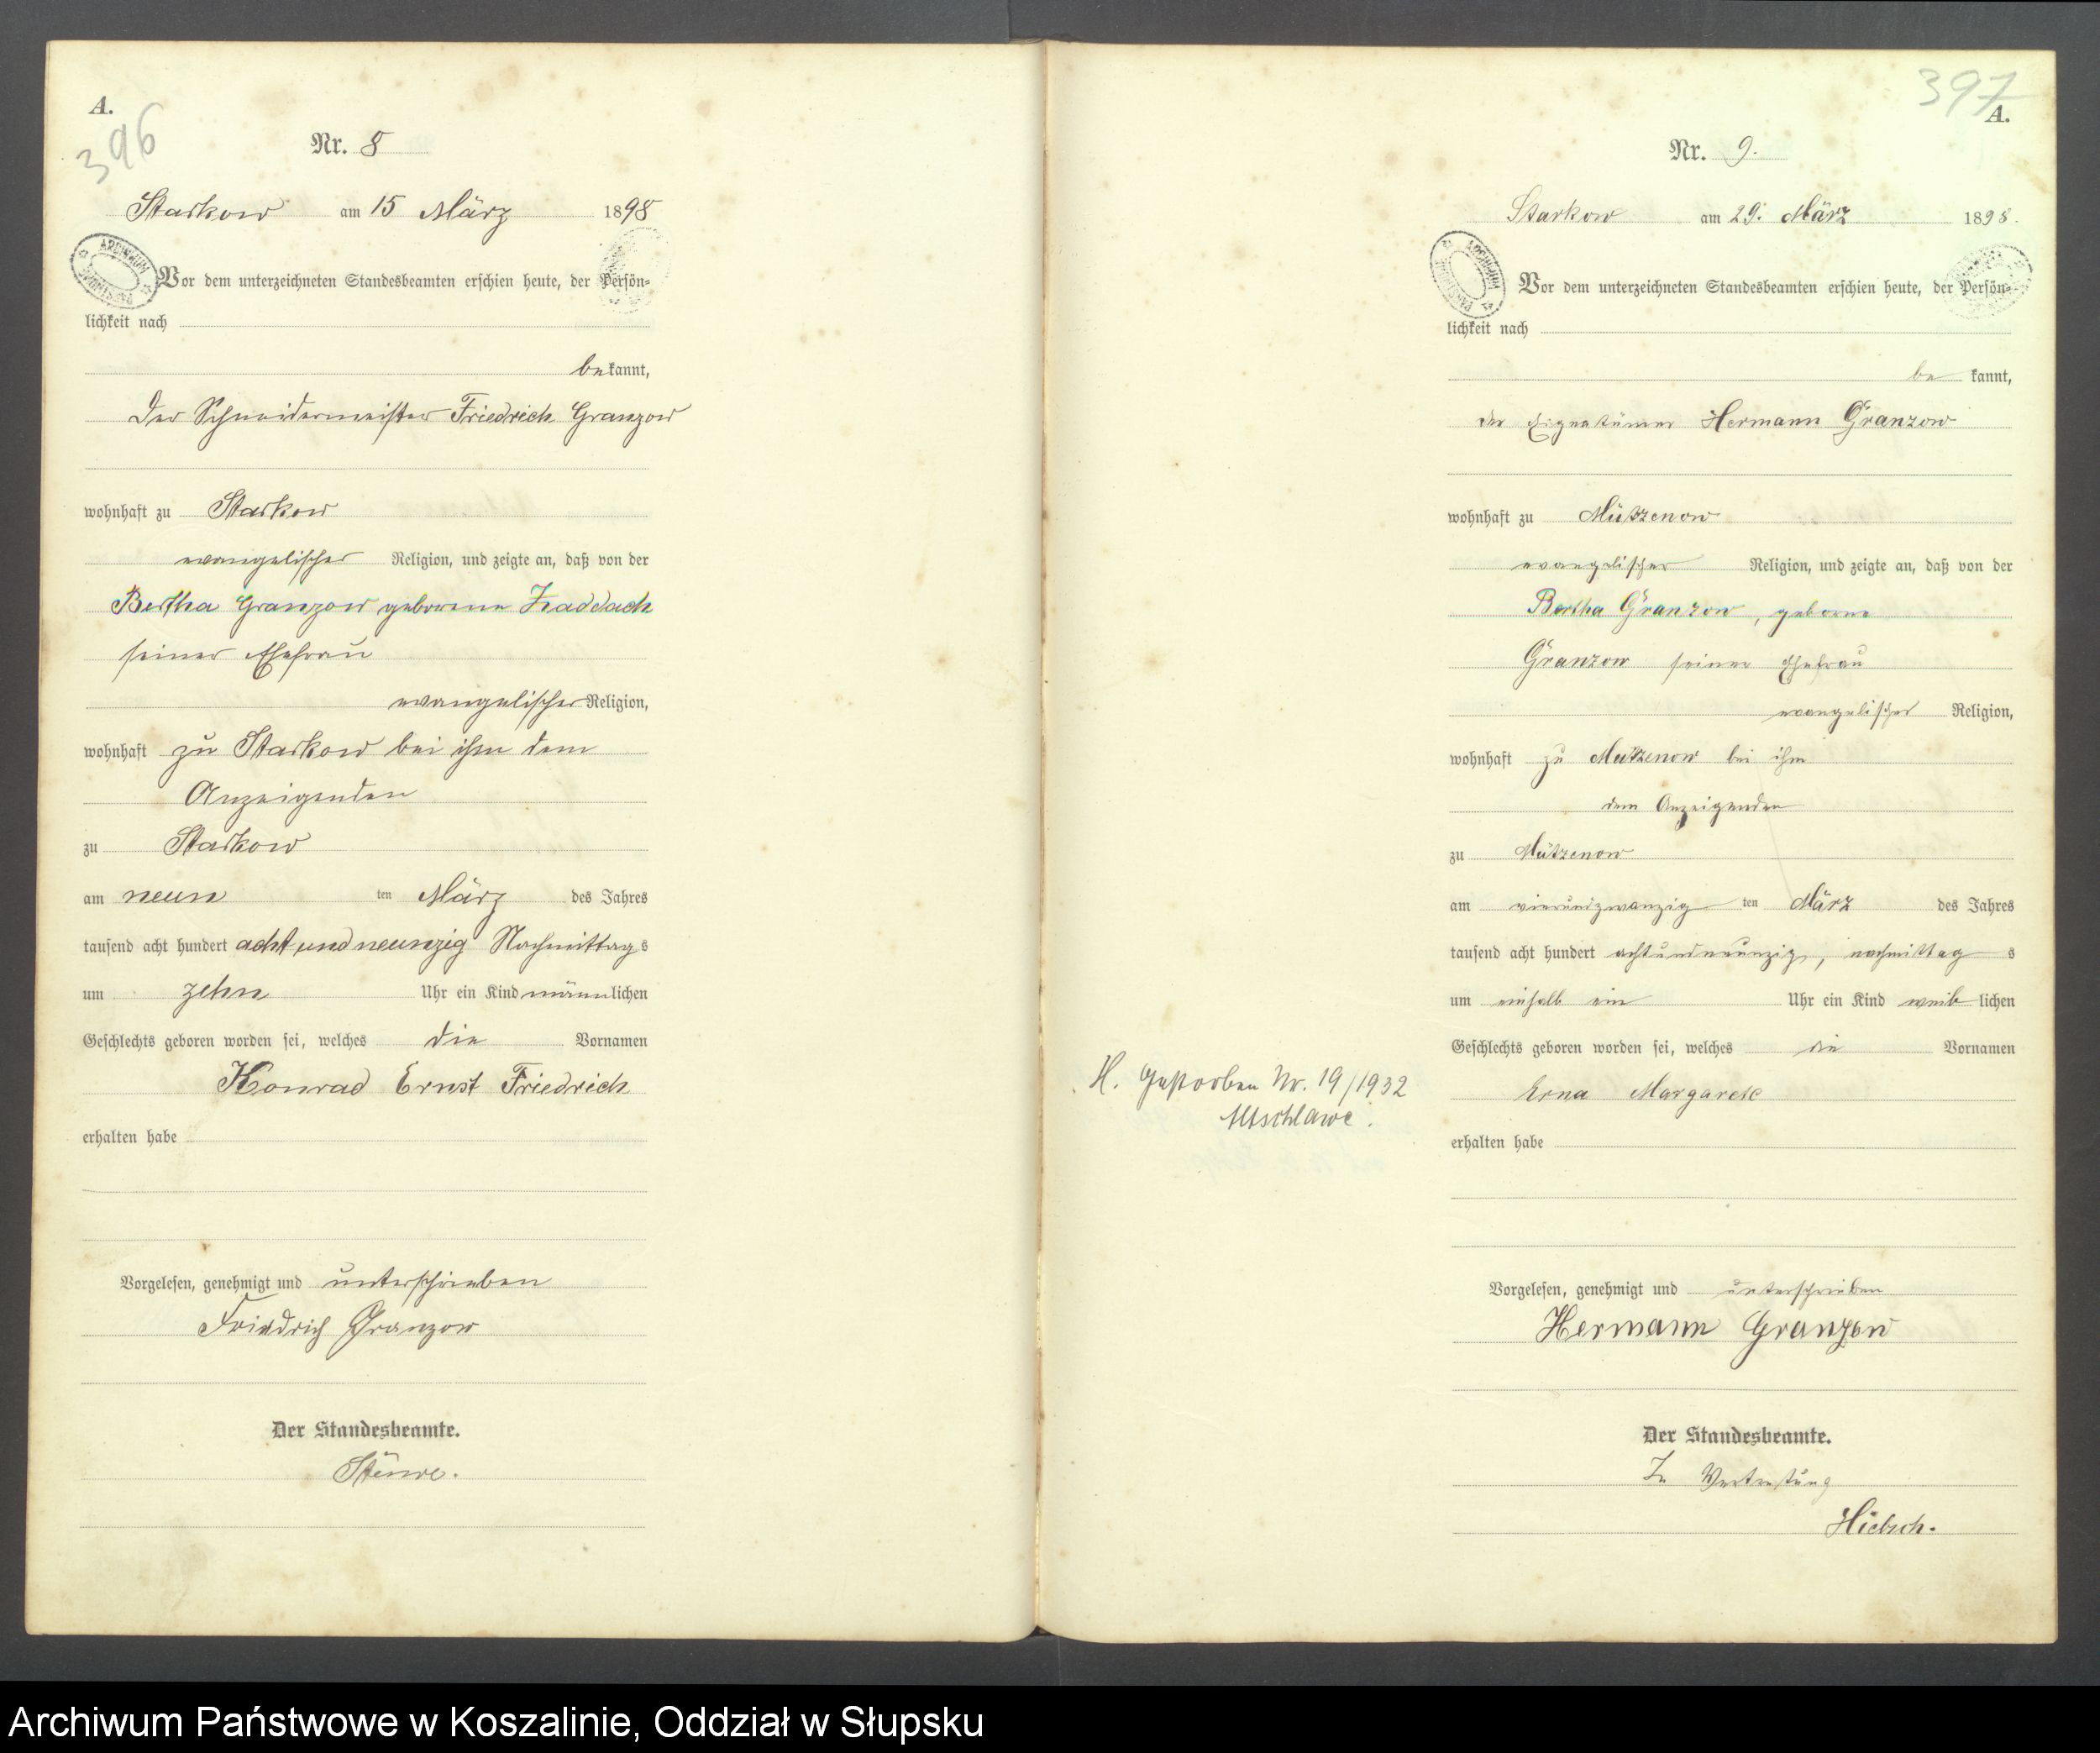 A.
396
Nr. 8
Starkow am 15 März 1898
Vor dem unterzeichneten Standesbeamten erschien heute, der Persön-
lichkeit nach
bekannt,
Der Schneidermeister Friedrich Granzow
wohnhaft zu Starkow
evangelischer Religion, und zeigte an, daß von der
Bertha Granzow geborene Zaddach
seiner Ehefrau
evangelischer Religion,
wohnhaft zu Starkow bei ihm dem
Anzeigenden
zu Starkow
am neun ten März des Jahres
tausend acht hundert acht und neunzig Nachmittags
um zehn Uhr ein Kind männlichen
Geschlechts geboren worden sei, welches die Vornamen
Konrad Ernst Friedrich
erhalten habe
Vorgelesen, genehmigt und unterschrieben
Friedrich Granzow
Der Standesbeamte.
Stüwe.
397
A.
Nr. 9.
Starkow am 29. März 1898.
ARCHIWUM PAŃSTWOWE
Vor dem unterzeichneten Standesbeamten erschien heute, der Persön-
lichkeit nach
be kannt,
der Eigentümer Hermann Granzow
wohnhaft zu Mützenow
evangelischer Religion, und zeigte an, daß von der
Bertha Granzow, geborne
Granzow seiner Ehefrau
evangelischer Religion,
wohnhaft zu Mützenow bei ihm
dem Anzeigenden
zu Mützenow
am vierundzwanzig ten März des Jahres
tausend acht hundert achtundneunzig, nachmittag s
um einhalb ein Uhr ein Kind weib lichen
Geschlechts geboren worden sei, welches die Vornamen
H. Gestorben Nr. 19/1932
Altschlawe.
Erna Margarete
erhalten habe
Vorgelesen, genehmigt und unterschrieben
Hermann Granzow
Der Standesbeamte.
In Vertretung
Archiwum Państwowe w Koszalinie, Oddział w Słupsku